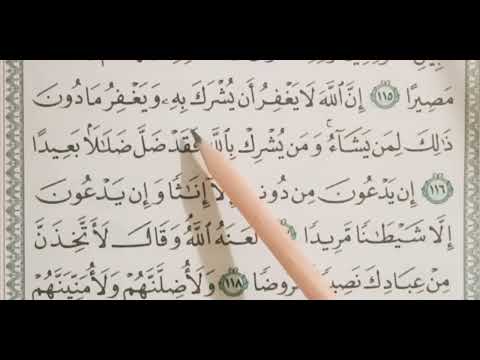 مَصِيرًا ۝١١٥ إِنَّ ٱللَّهَ لَا يَغْفِرُ أَن يُشْرَكَ بِهِۦ وَيَغْفِرُ مَا دُونَ
ذَٰلِكَ لِمَن يَشَآءُ ۚ وَمَن يُشْرِكْ بِٱللَّهِ فَقَدْ ضَلَّ ضَلَٰلًۢا بَعِيدًا
۝١١٦ إِن يَدْعُونَ مِن دُونِهِۦٓ إِلَّآ إِنَٰثًا وَإِن يَدْعُونَ
إِلَّا شَيْطَٰنًا مَّرِيدًا لَّعَنَهُ ٱللَّهُ وَقَالَ لَأَتَّخِذَنَّ
مِنْ عِبَادِكَ نَصِيبًا مَّفْرُوضًا ۝١١٨ وَلَأُضِلَّنَّهُمْ وَلَأُمَنِّيَنَّهُمْ